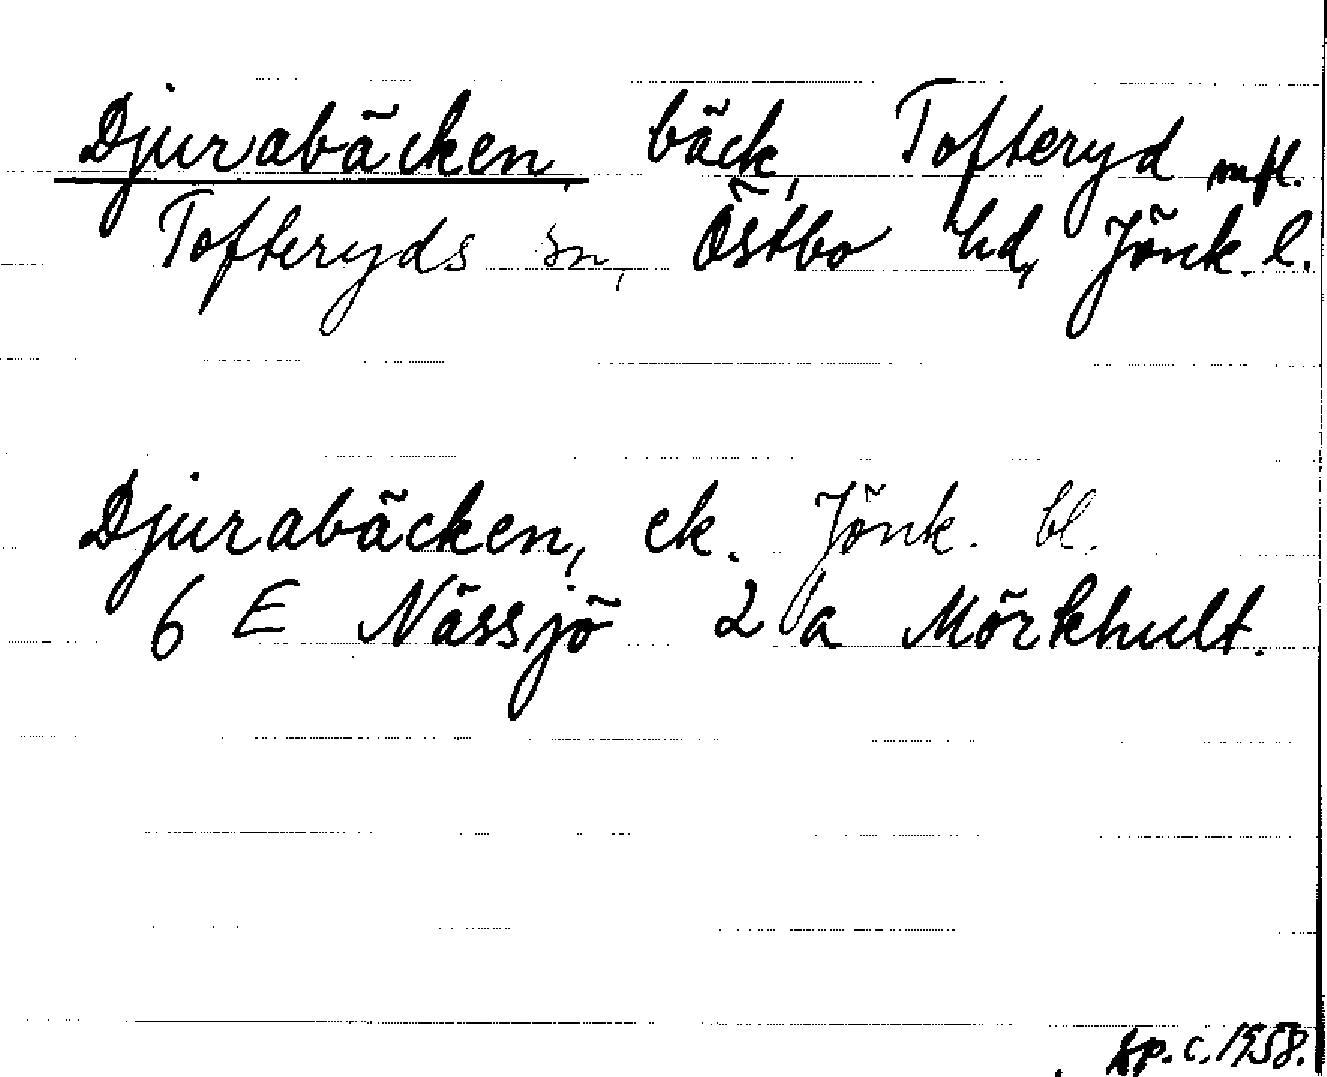 Djurabäcken, bäck, Tofteryd mfl.
Tofteryds sn, Östbo hd, Jönk. l.
Djurabäcken, ek. Jönk. bl.
6 E Nässjö 2 a Mörkhult.
Xp. c. 1958.